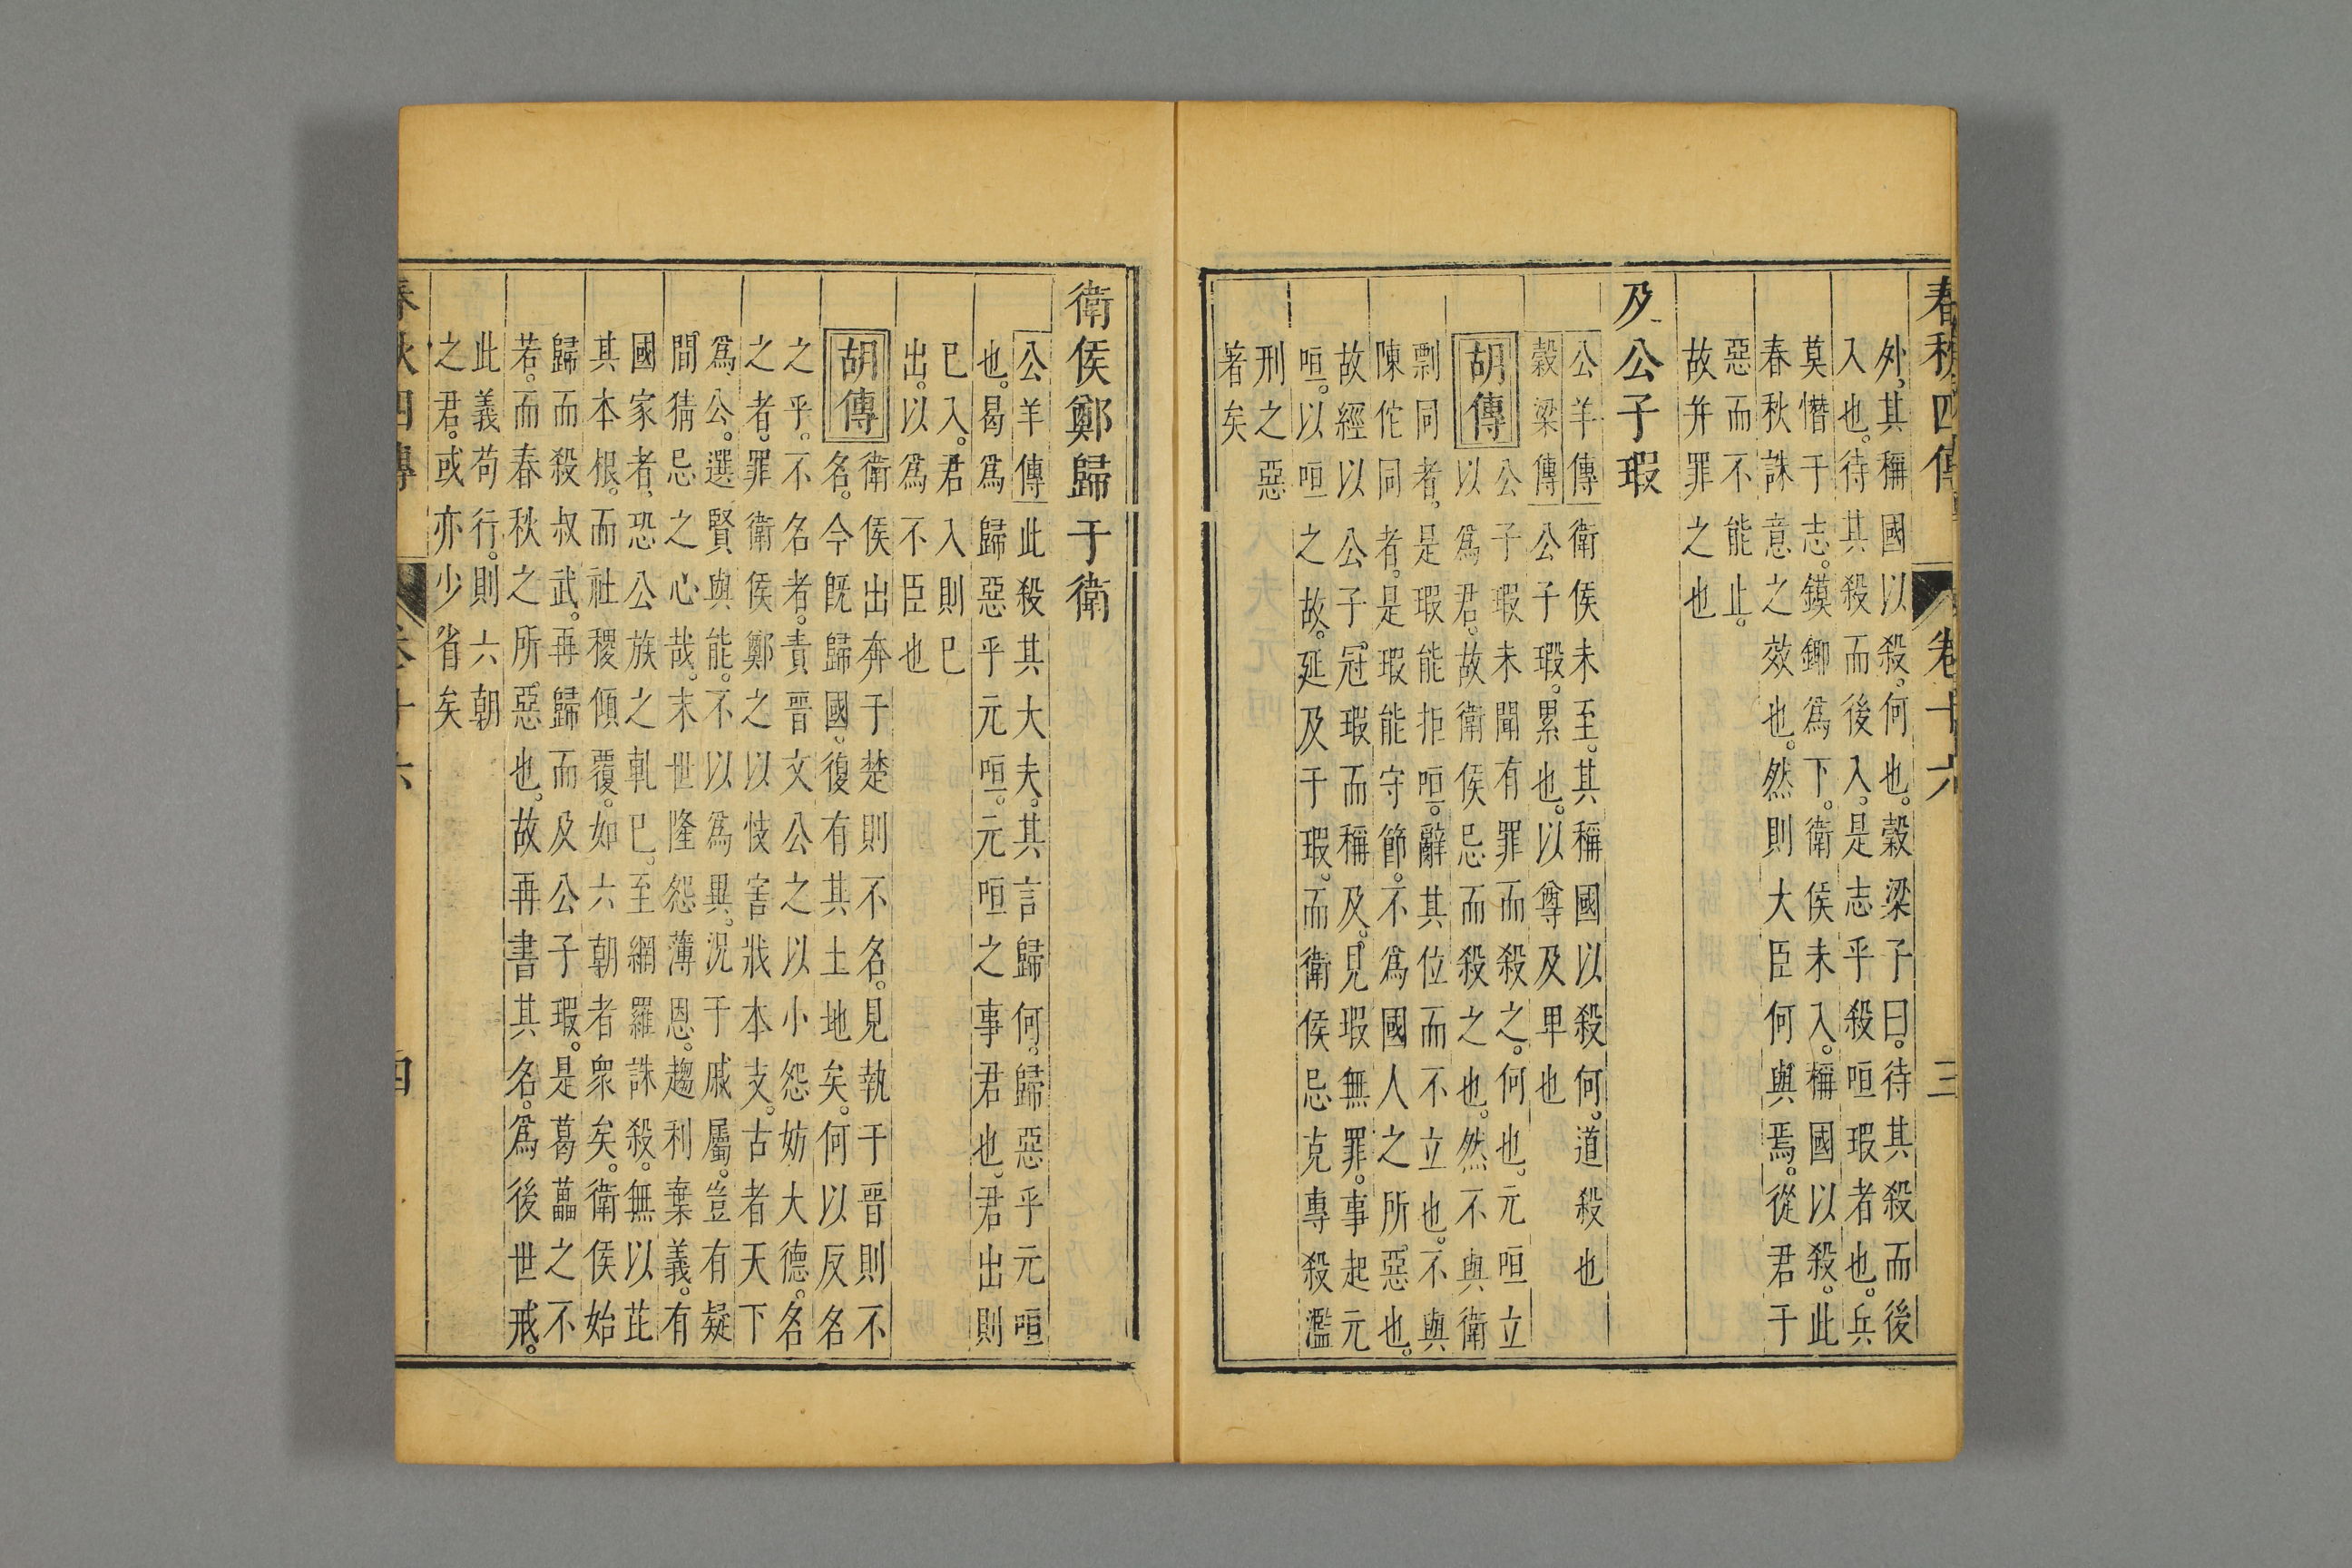 春秋四傳 卷十六 三
外其稱國以殺何也穀梁子曰待其殺而後
入也待其殺而後入是志乎殺咺瑕者也兵
莫憯于志鏌鎁爲下衛侯未入稱國以殺此
春秋誅意之效也然則大臣何與焉從君于
惡而不能止
故并罪之也
及公子瑕
公羊傳衛侯未至其稱國以殺何道殺也
穀梁傳公子瑕累也以尊及卑也
胡傳
公子瑕未聞有罪而殺之何也元咺立
以爲君故衛侯忌而殺之也然不與衛
剽同者是瑕能拒咺辭其位而不立也不與
陳佗同者是瑕能守節不爲國人之所惡也
故經以公子冠瑕而稱及見瑕無罪事起元
咺以咺之故延及于瑕而衛侯忌克專殺濫
刑之惡
著矣
衛侯鄭歸于衛
公羊傳此殺其大夫其言歸何歸惡乎元咺
也曷爲歸惡乎元咺元咺之事君也君出則
已入君入則已
出以爲不臣也
胡傳
衛侯出奔于楚則不名見執于晉則不
名今旣歸國復有其土地矣何以反名
之乎不名者責晉文公之以小怨妨大德名
之者罪衛侯鄭之以忮害戕本支古者天下
爲公選賢與能不以爲異況于戚屬豈有疑
間猜忌之心哉末世隆怨薄恩趨利棄義有
國家者恐公族之軋已至網羅誅殺無以芘
其本根而社稷傾覆如六朝者衆矣衛侯始
歸而殺叔武再歸而及公子瑕是葛藟之不
若而春秋之所惡也故再書其名爲後世戒
此義苟行則六朝
之君或亦少省矣
春秋四傳 卷十六 四